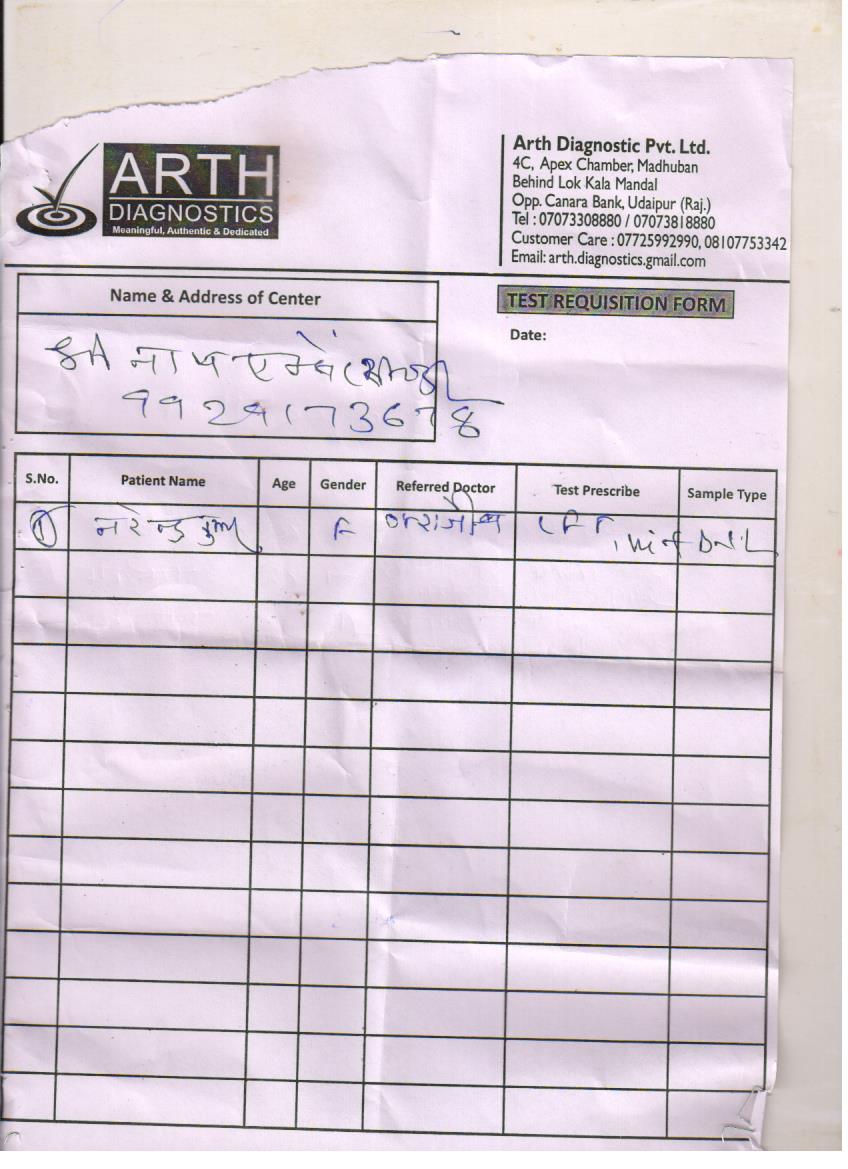 ARTH
DIAGNOSTICS
Meaningful, Authentic & Dedicated
Arth Diagnostic Pvt. Ltd.
4C, Apex Chamber, Madhuban
Behind Lok Kala Mandal
Opp. Canara Bank, Udaipur (Raj.)
Tel : 07073308880 / 07073818880
Customer Care : 07725992990, 08107753342
Email: arth.diagnostics.gmail.com
Name & Address of Center
TEST REQUISITION FORM
Date:
9929173678
S.No. Patient Name Age Gender Referred Doctor Test Prescribe Sample Type
1 नरेन्द्र F LFT